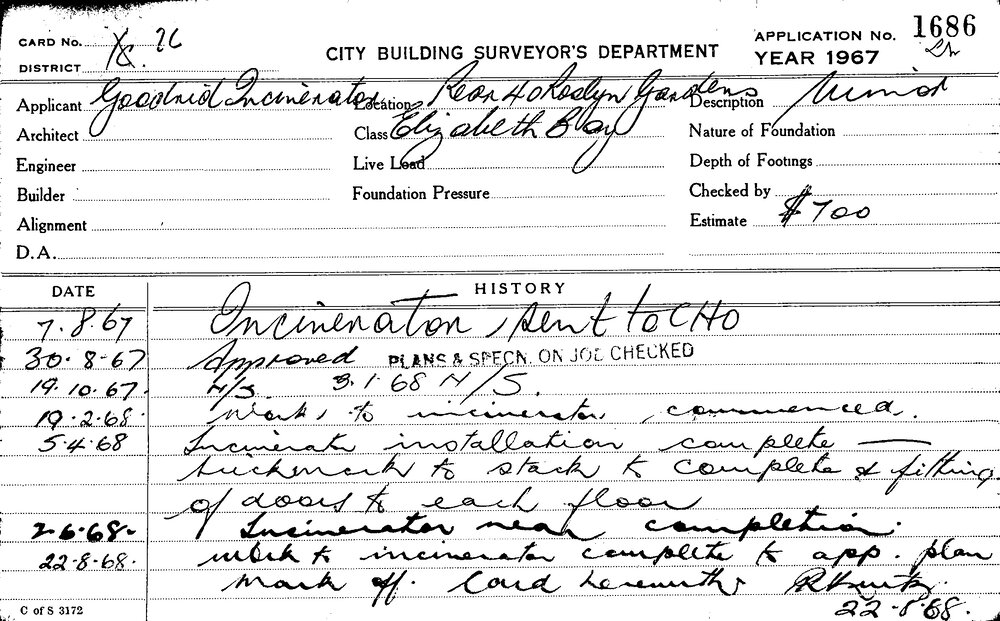 CARD No. 26
DISTRICT
CITY BUILDING SURVEYOR'S DEPARTMENT
APPLICATION No. 1686
YEAR 1967
Applicant Goodrid Incinerators Location Rear 40 Roslyn Gardens Description Minor
Architect Class Elizabeth Bay Nature of Foundation
Engineer Live Load Depth of Footings
Builder Foundation Pressure Checked by
Alignment Estimate $700
D.A.
DATE HISTORY
7.8.67 Incinerator, sent to CHO
30.8.67 Approved PLANS & SPECN. ON JOB CHECKED
19.10.67. N/S. 3.1.68 N/S.
19.2.68. Work to incinerator commenced.
5.4.68 Incinerator installation complete —
brickwork to stack to complete & fitting
of doors to each floor
2.6.68. Incinerator near completion.
22.8.68. work to incinerator complete to app. plan
Mark off. Card herewith
22-8.68.
C of S 3172